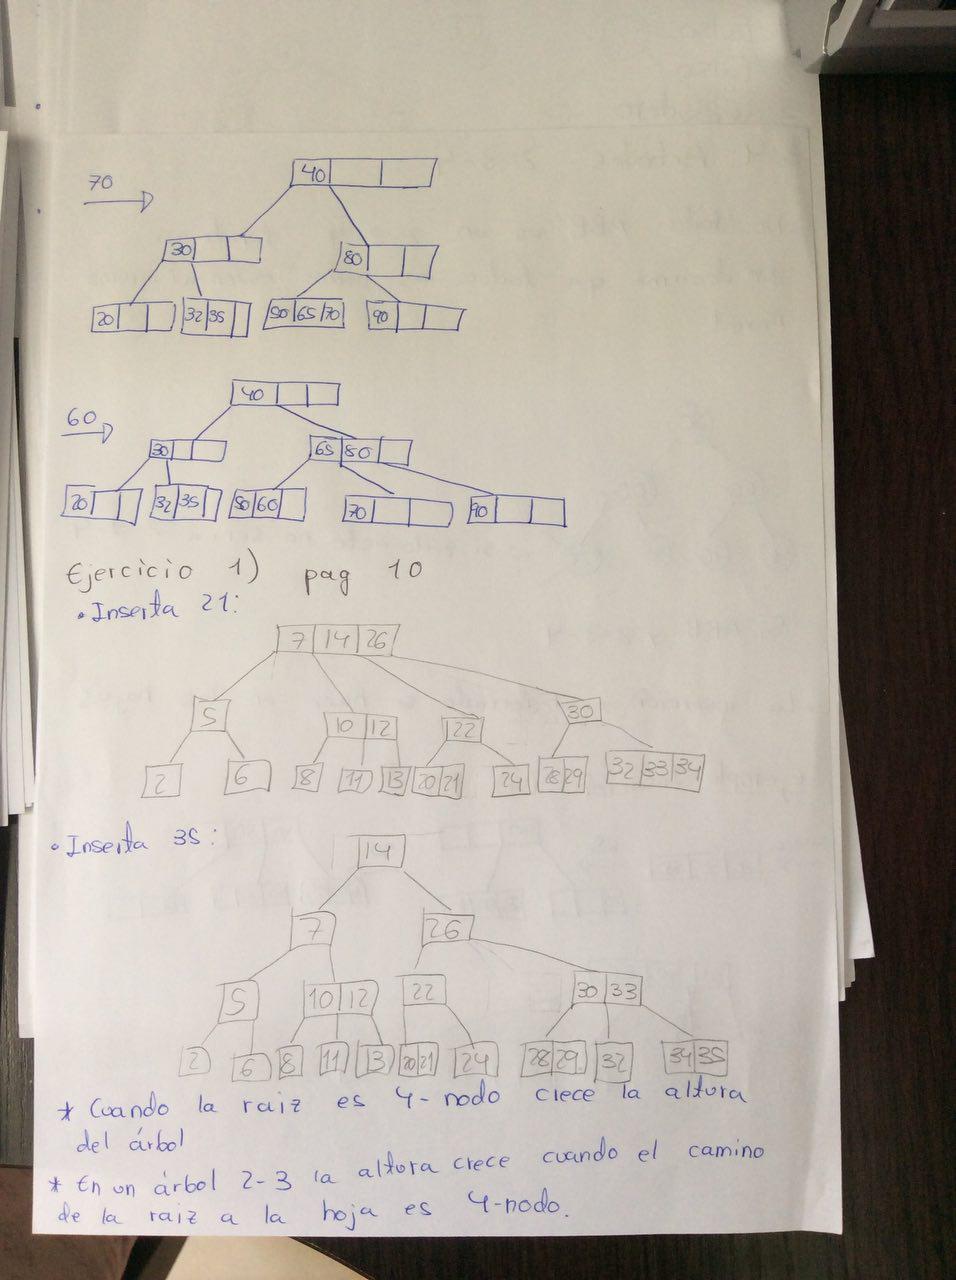 70
40
30
80
20 32 35 50 65 70 90
60
40
30 65 80
20 32 35 50 60 70 90
Ejercicio 1) pag 10
• Inserta 21:
7 14 26
5 10 12 22 30
2 6 8 11 13 20 21 24 28 29 32 33 34
• Inserta 35:
14
7 26
5 10 12 22 30 33
2 6 8 11 13 20 21 24 28 29 32 34 35
* Cuando la raiz es 4-nodo crece la altura
del árbol
* En un árbol 2-3 la altura crece cuando el camino
de la raiz a la hoja es 4-nodo.